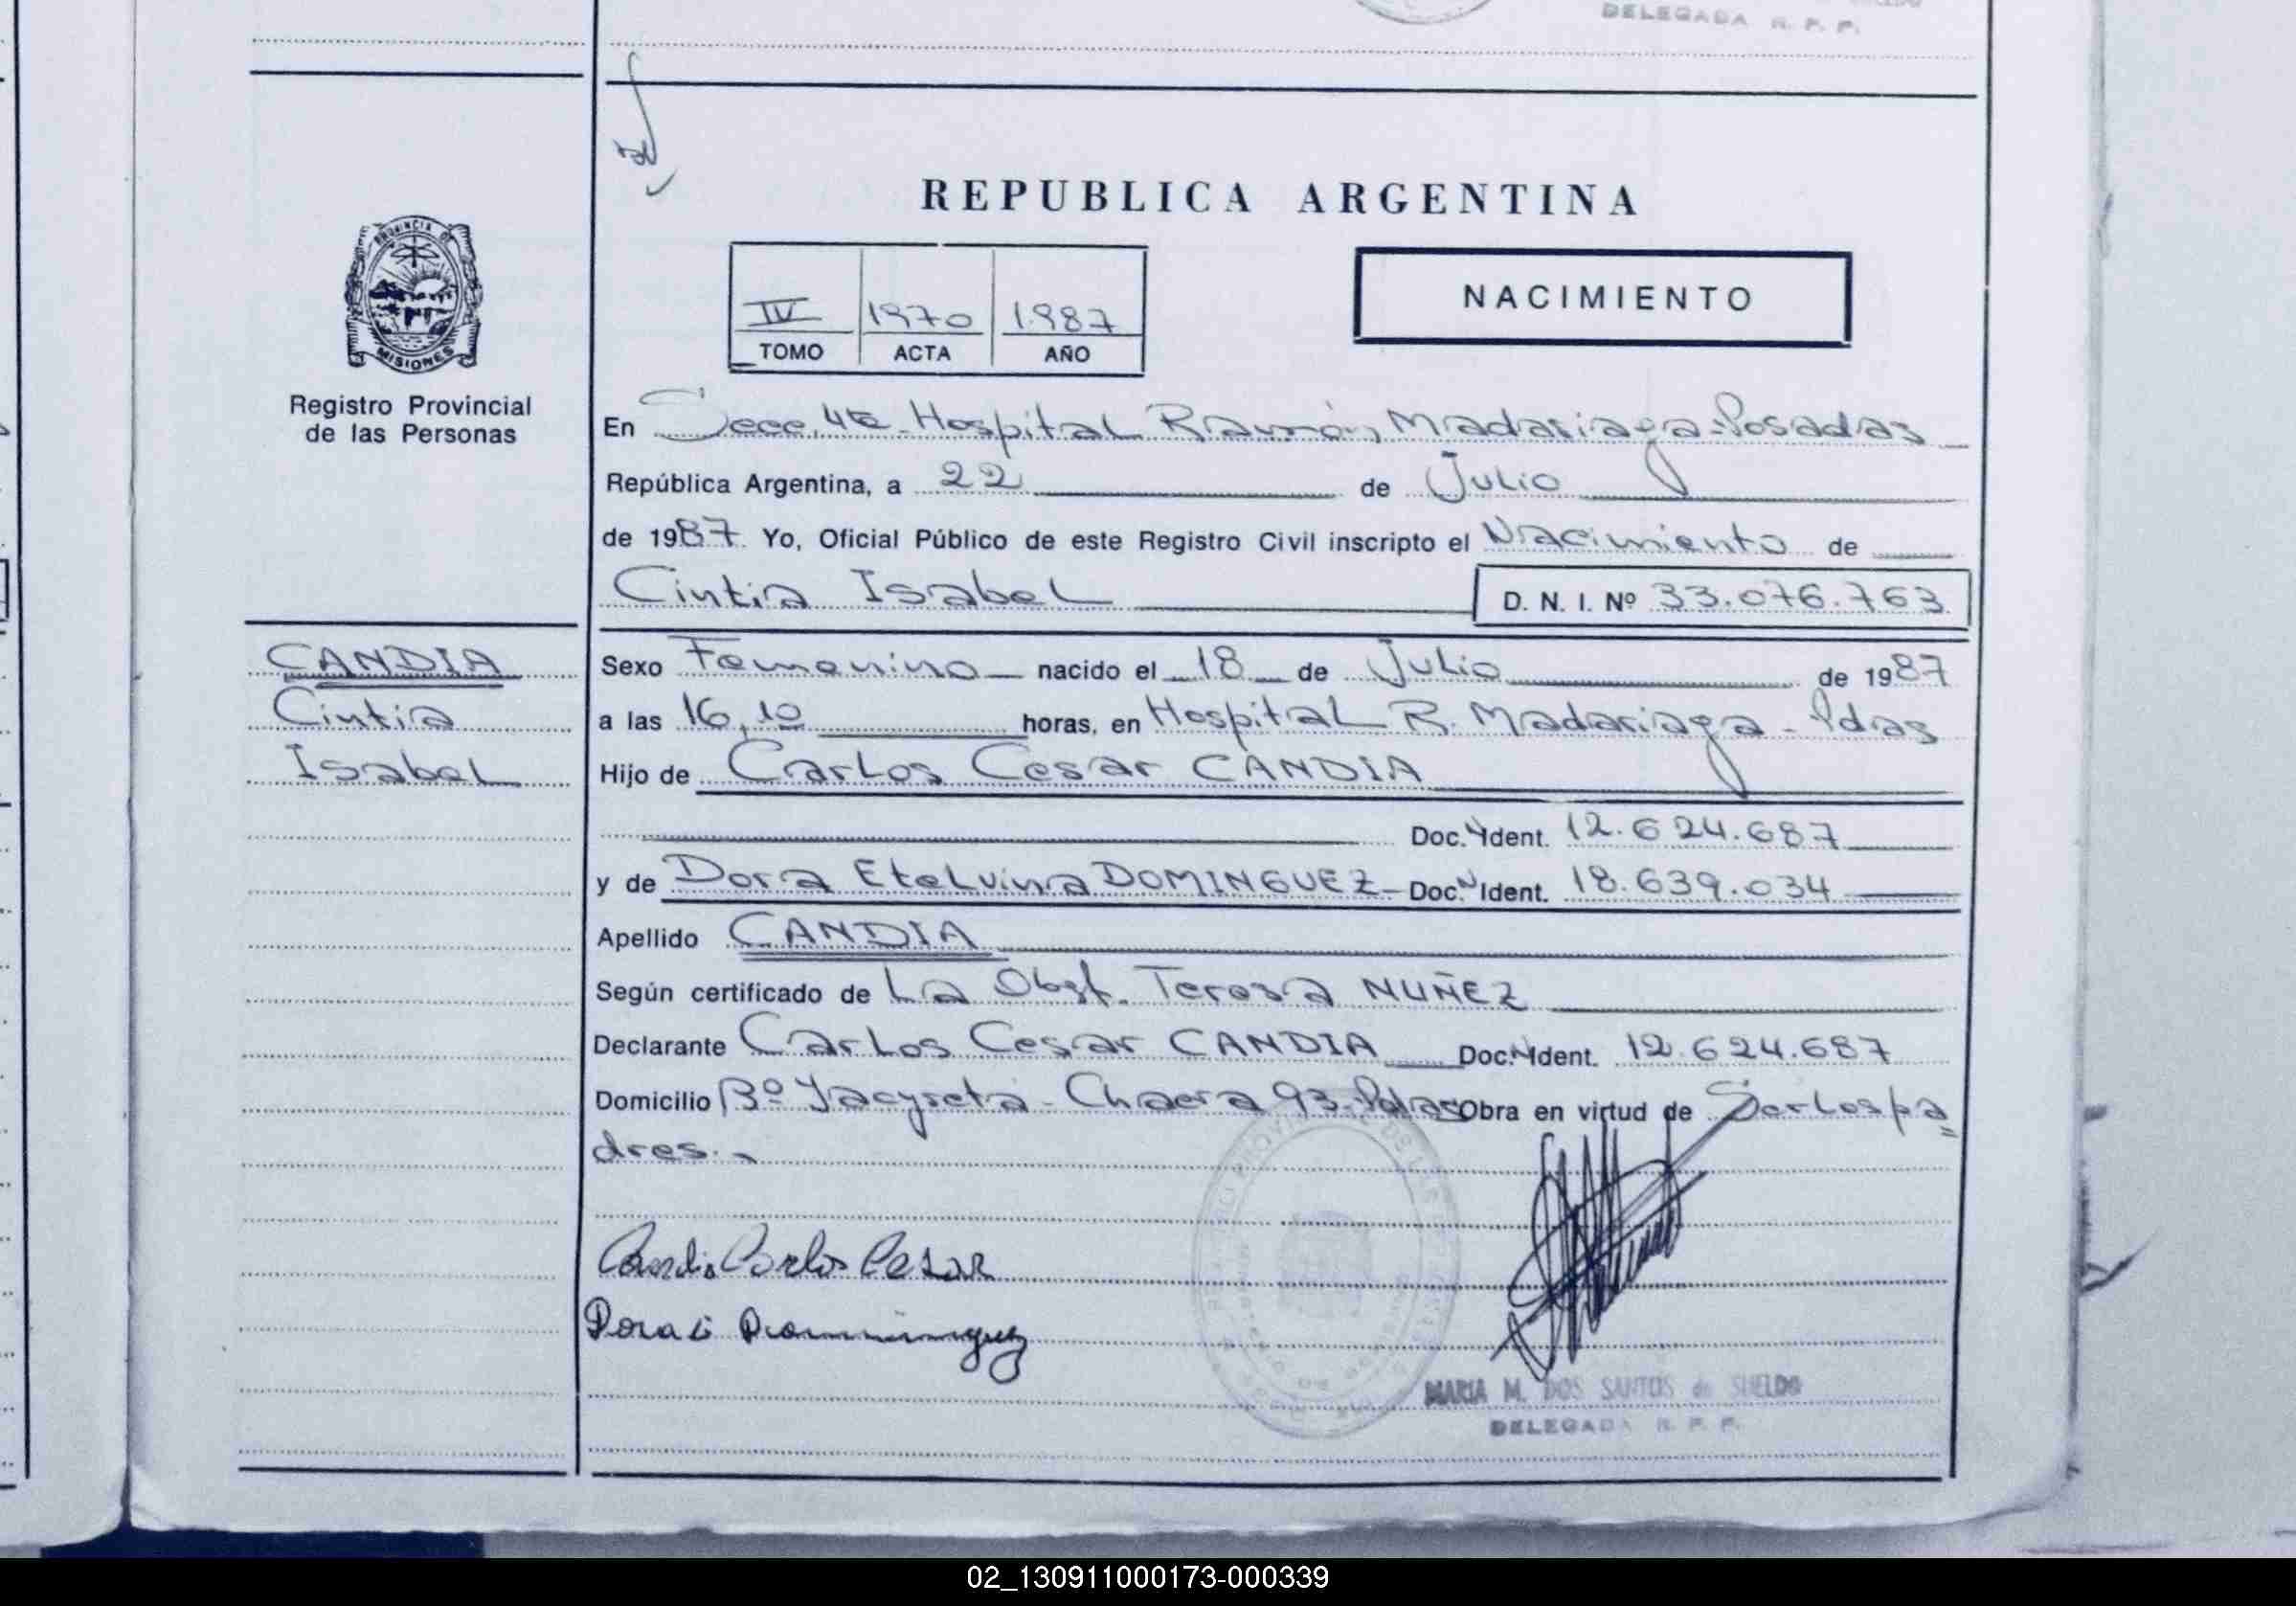 DELEGADA R. P. P.
REPUBLICA ARGENTINA
PROVINCIA DE
MISIONES
Registro Provincial
de las Personas
IV 1970 1987
TOMO ACTA AÑO
NACIMIENTO
En Secc. 4ta Hospital Ramón Madariaga - Posadas
República Argentina, a 22 de Julio
de 1987 Yo, Oficial Público de este Registro Civil inscripto el Nacimiento de
Cintia Isabel D. N. I. Nº 33.076.763
CANDIA
Cintia
Isabel
Sexo Femenino nacido el 18 de Julio de 1987
a las 16,10 horas, en Hospital R. Madariaga - Pdas
Hijo de Carlos Cesar CANDIA
Doc. Ident. 12.624.687
y de Dora Etelvina DOMINGUEZ - Doc. Ident. 18.639.034
Apellido CANDIA
Según certificado de La Obst. Teresa NUÑEZ
Declarante Carlos Cesar CANDIA Doc. Ident. 12.624.687
Domicilio Bº Yacyreta - Chacra 93 - Pdas Obra en virtud de Ser los pa
dres. -
Candia Carlos Cesar
Dora E Dominguez
MARIA M. DOS SANTOS de SHELDO
DELEGADA R. P. P.
02_130911000173-000339